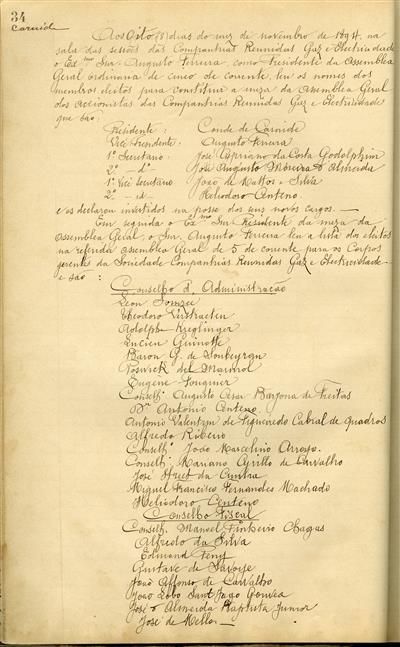 34
Carnide
Aos Oito (8) dias do mez de novembro de 1894, na
sala das sessões das Companhias Reunidas Gaz e Electricidade
o Exmo Snr. Augusto Ferreira, como Presidente da Assemblea
Geral ordinaria de cinco de corrente, leu os nomes dos
membros eleitos para constituir a meza da Assemblea Geral
dos accionistas das Companhias Reunidas Gaz e Electricidade
que são:
Presidente: Conde de Carnide
Vice Presidente: Augusto Ferreira
1º Secretario: José Cypriano da Costa Godolphim
2º - dº José Augusto Moreira d'Almeida
1º Vice Secretario João de Mattos e Silva
2º - d Heliodoro Centeno
e os declarou investidos na posse dos seus novos cargos —
Em seguida o Exmo Snr. Presidente da meza da
Assemblea Geral, o Snr. Augusto Ferreira leu a lista dos eleitos
na referida Assemblea Geral de 5 de corrente para os Corpos
gerentes da Sociedade Companhias Reunidas Gaz e Electricidade
e são:
Conselho d'Administração
Léon Somzée
Theodoro Verstraeten
Adolphe Kreglinger
Lucien Guinotte
Baron G. de Soubeyran
del Marmol
Eugene
Conselhº Augusto Cesar Barjona de Freitas
Dr Antonio Centeno
Antonio Valentym de Figueredo Cabral de Quadros
Alfredo Ribeiro
Conselhº João Marcelino Arroyo.
Conselhº Mariano Cyrillo de Carvalho
José Street da Cunha
Miguel Francisco Fernandes Machado
Heliodoro Centeno
Conselho Fiscal
Conselhº Manoel Pinheiro Chagas
Alfredo da Silva
Edmond
Gustave de Savoye
João Affonso de Carvalho
João Lobo Sant'Iago Gouvea
José d'Almeida Baptista Junior
José de Mello —